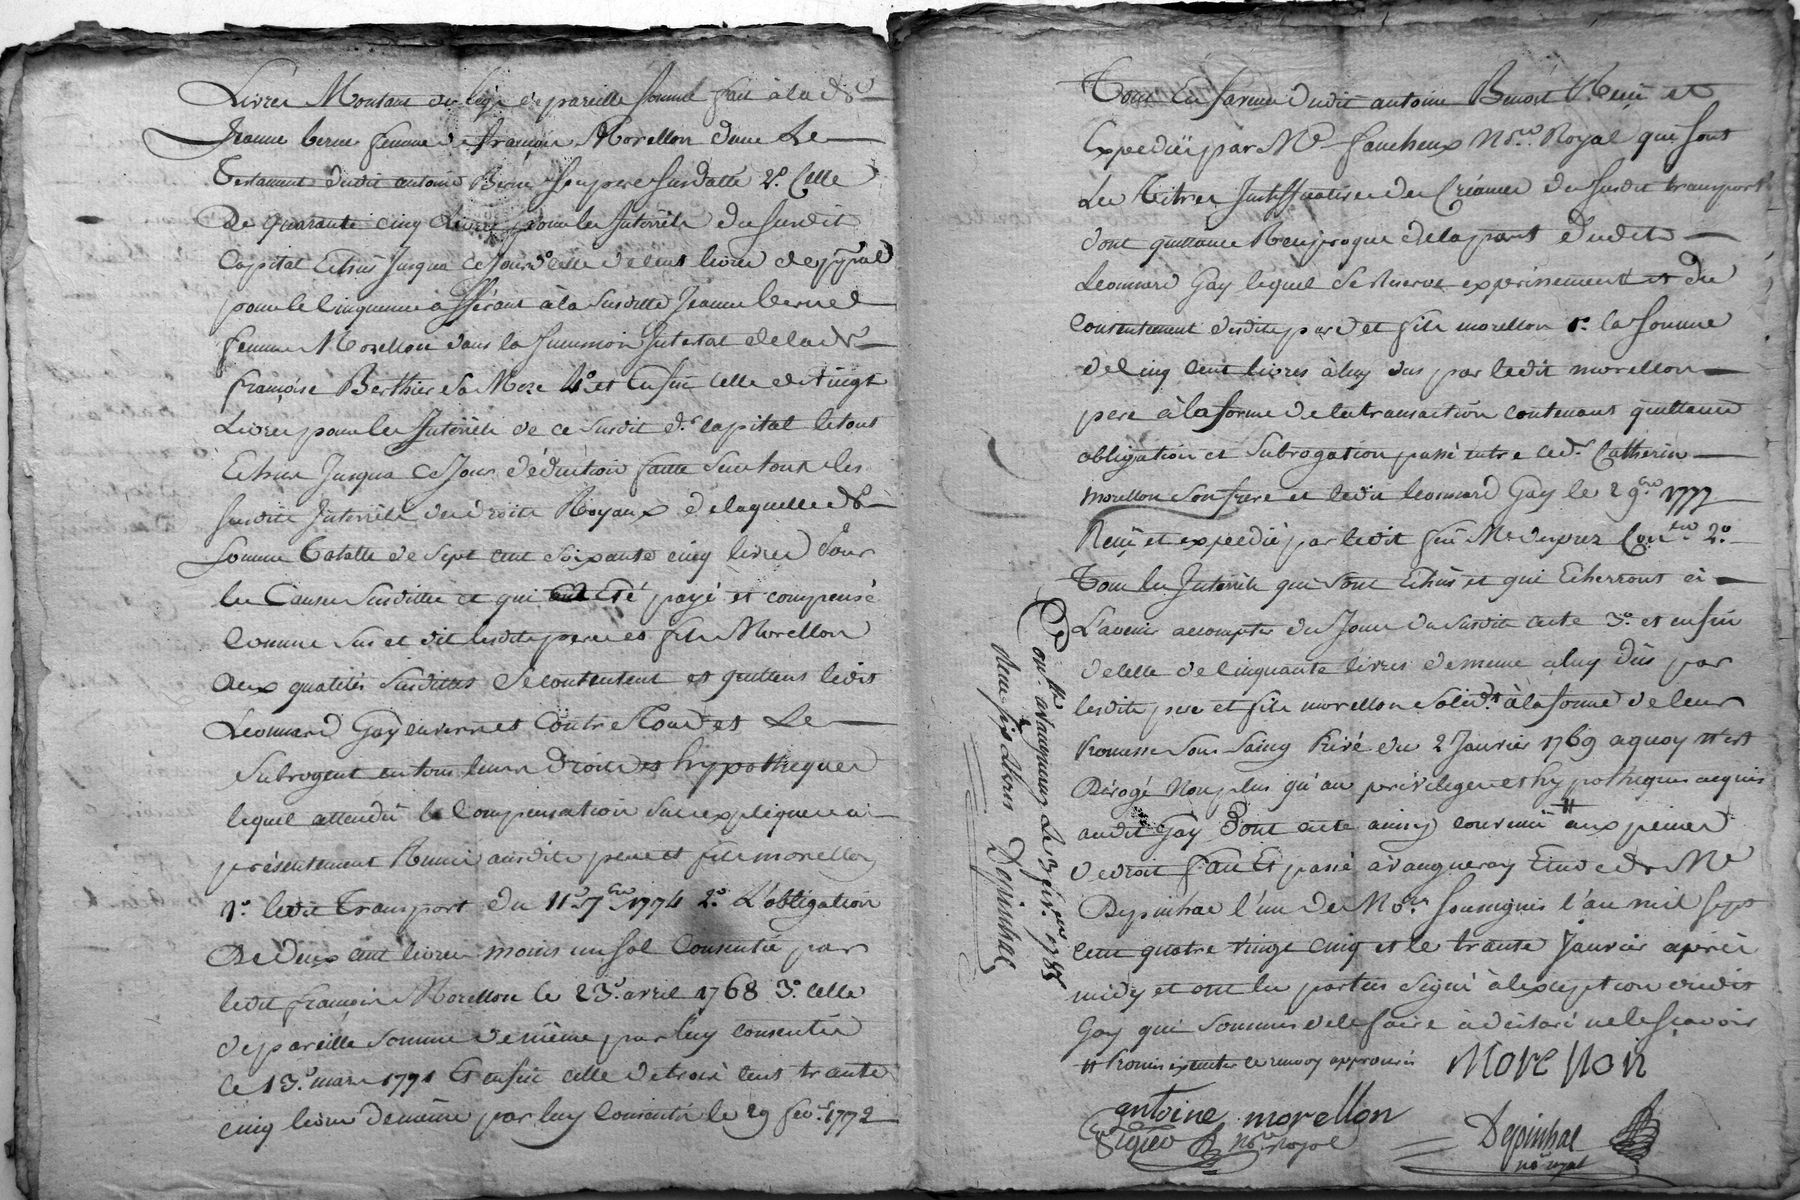 Livres Montant du legs de pareille somme fait à lade
Jeanne berne femme de françois Morellon dans Le
Testament dudit antoine Berne son pere susdatté 2º Celle
De quarante cinq Livres pour les Interrêts du susdit
Capital Echus Jusqua ce Jour 3º celle de cent livres de ppal
pour le Cinquieme afférant à la susditte Jeanne berne
femme Morellon dans la succession Intestat de lade
françoise Berthier sa Mere 4º et Enfin celle de vingt
Livres pour les Interrêts de ce susdit dr capital le tout
Echus Jusqua ce Jour déduction faitte sur tous les
susdits Interrêts des droits Royaux de laquelle de
somme Totalle de sept cent soixante cinq livres pour
les Causes susdittes et qui ont Eté payé et compensé
Comme sus est dit lesdits pere et fils Morellon
aux qualités susdittes se contentent et quittent ledit
Leonnard Gay envers et contre Tous et Le
subrogent en tous leurs droits et hypotheques
lequel attendu la Compensation sus expliquée a
présentement Remis ausdits pere et fils morellon
1º ledit Transport du 11e 7bre 1774 2º L'obligation
De deux cent livres moins un sol Consentie par
ledit françois Morellon le 23e avril 1768 3º celle
de pareille somme de même par luy consentie
le 13e mars 1771 Et enfin celle de trois cent trante
cinq livres de même par luy Consentie le 29 fevr 1772
Tous En faveur dudit antoine Benoit Reçu et
Expediés par Me faucheux Nore Royal qui sont
Les Titres Justifficatives des Créances du susdit transport
dont quittance Reciproque de la part dudit
Leonnard Gay lequel se Reserve expressement et du
Consentement desdits pere et fils morellon 1º la somme
de Cinq Cent livres à luy dus par ledit morellon
pere à la forme de la transaction contenant quittance
obligation et subrogation passé entre ledt Catherin
morellon son frere et ledit leonnard Gay le 2 9bre 1777
Reçu et expedié par ledit feu Me duprez
Tous les Interrêts qui sont Echus et qui Echerront à
L'avenir accompter du Jour du susdit acte 3º et enfin
de celle de Cinquante livres de meme a luy dus par
lesdits pere et fils morellon solidt à la forme de leur
Promesse sous saing Privé du 2 Janvier 1769 aquoy n'est
Dérogé Non plus qu'au privilege et hypotheques acquis
audit Gay Dont acte ainsy convenu # aux peines
de droit fait Et passé à vaugneray Etude de Me
Depinhac l'un des Nores soussignés l'an mil sept
Cent quatre vingt cinq et le trante Janvier après
midy et ont les parties signé à l'exception dudit
Gay qui sommés de le faire à déclaré ne le sçavoir
# Promis executer ce renvoy approuvés
morellon
antoine morellon
nore royal
Depinhac
nore royal
Conllé à vaugneray Le 3 févrer 1785
Depinhac